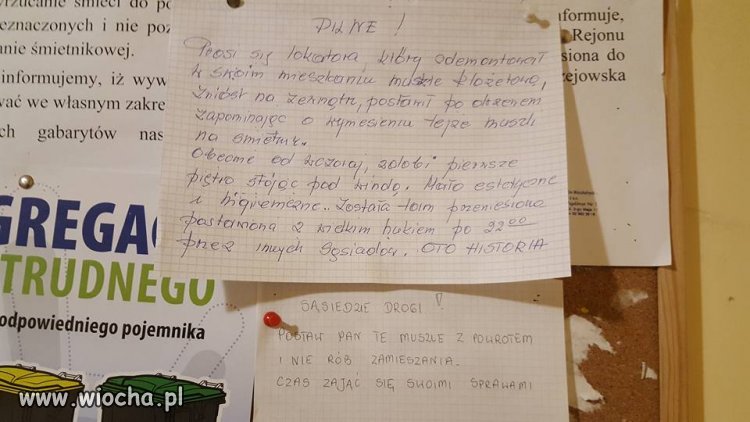 rzucanie śmieci do po
eznaczonych i nie poz
anie śmietnikowej.
informujemy, iż wyw
wać we własnym zakre
ch gabarytów nas
formuje,
Rejonu
siona do
ejowska
PILNE !
Prosi się lokatora, który zdemontował
w swoim mieszkaniu muszlę klozetową,
zniósł na zewnątrz, postawił pod oknem
zapominając o wyniesieniu tejże muszli
na śmietnik.
Obecnie od wczoraj, zdobi pierwsze
piętro stojąc pod windą. Mało estetyczne
i higieniczne.. Została tam przeniesiona
postawiona z wielkim hukiem po 22 00
przez innych sąsiadów. OTO HISTORIA
SĄSIEDZIE DROGI !
POSTAW PAN TE MUSZLE Z POWROTEM
I NIE RÓB ZAMIESZANIA.
CZAS ZAJĄĆ SIĘ SWOIMI SPRAWAMI
GREGAC
TRUDNEGO
odpowiedniego pojemnika
www.wiocha.pl